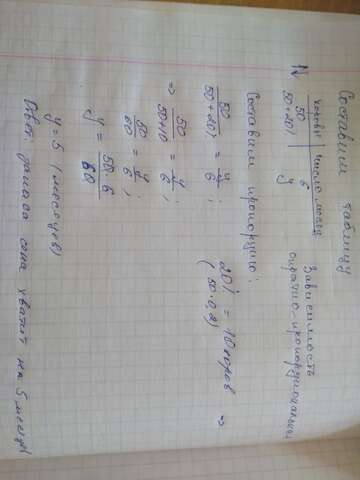 Составим таблицу
коровы | число месяц
50 | 6
50+20% | y
Зависимость
обратно-пропорциональная
Составим пропорцию:
50/50+20% = y/6 ;
20% = 10 коров ⇒
(50·0,2)
⇒ 50/50+10 = y/6 ;
50/60 = y/6 ;
y = 50·6/60
y = 5 (месяцев)
Ответ: запаса сена хватит на 5 месяцев